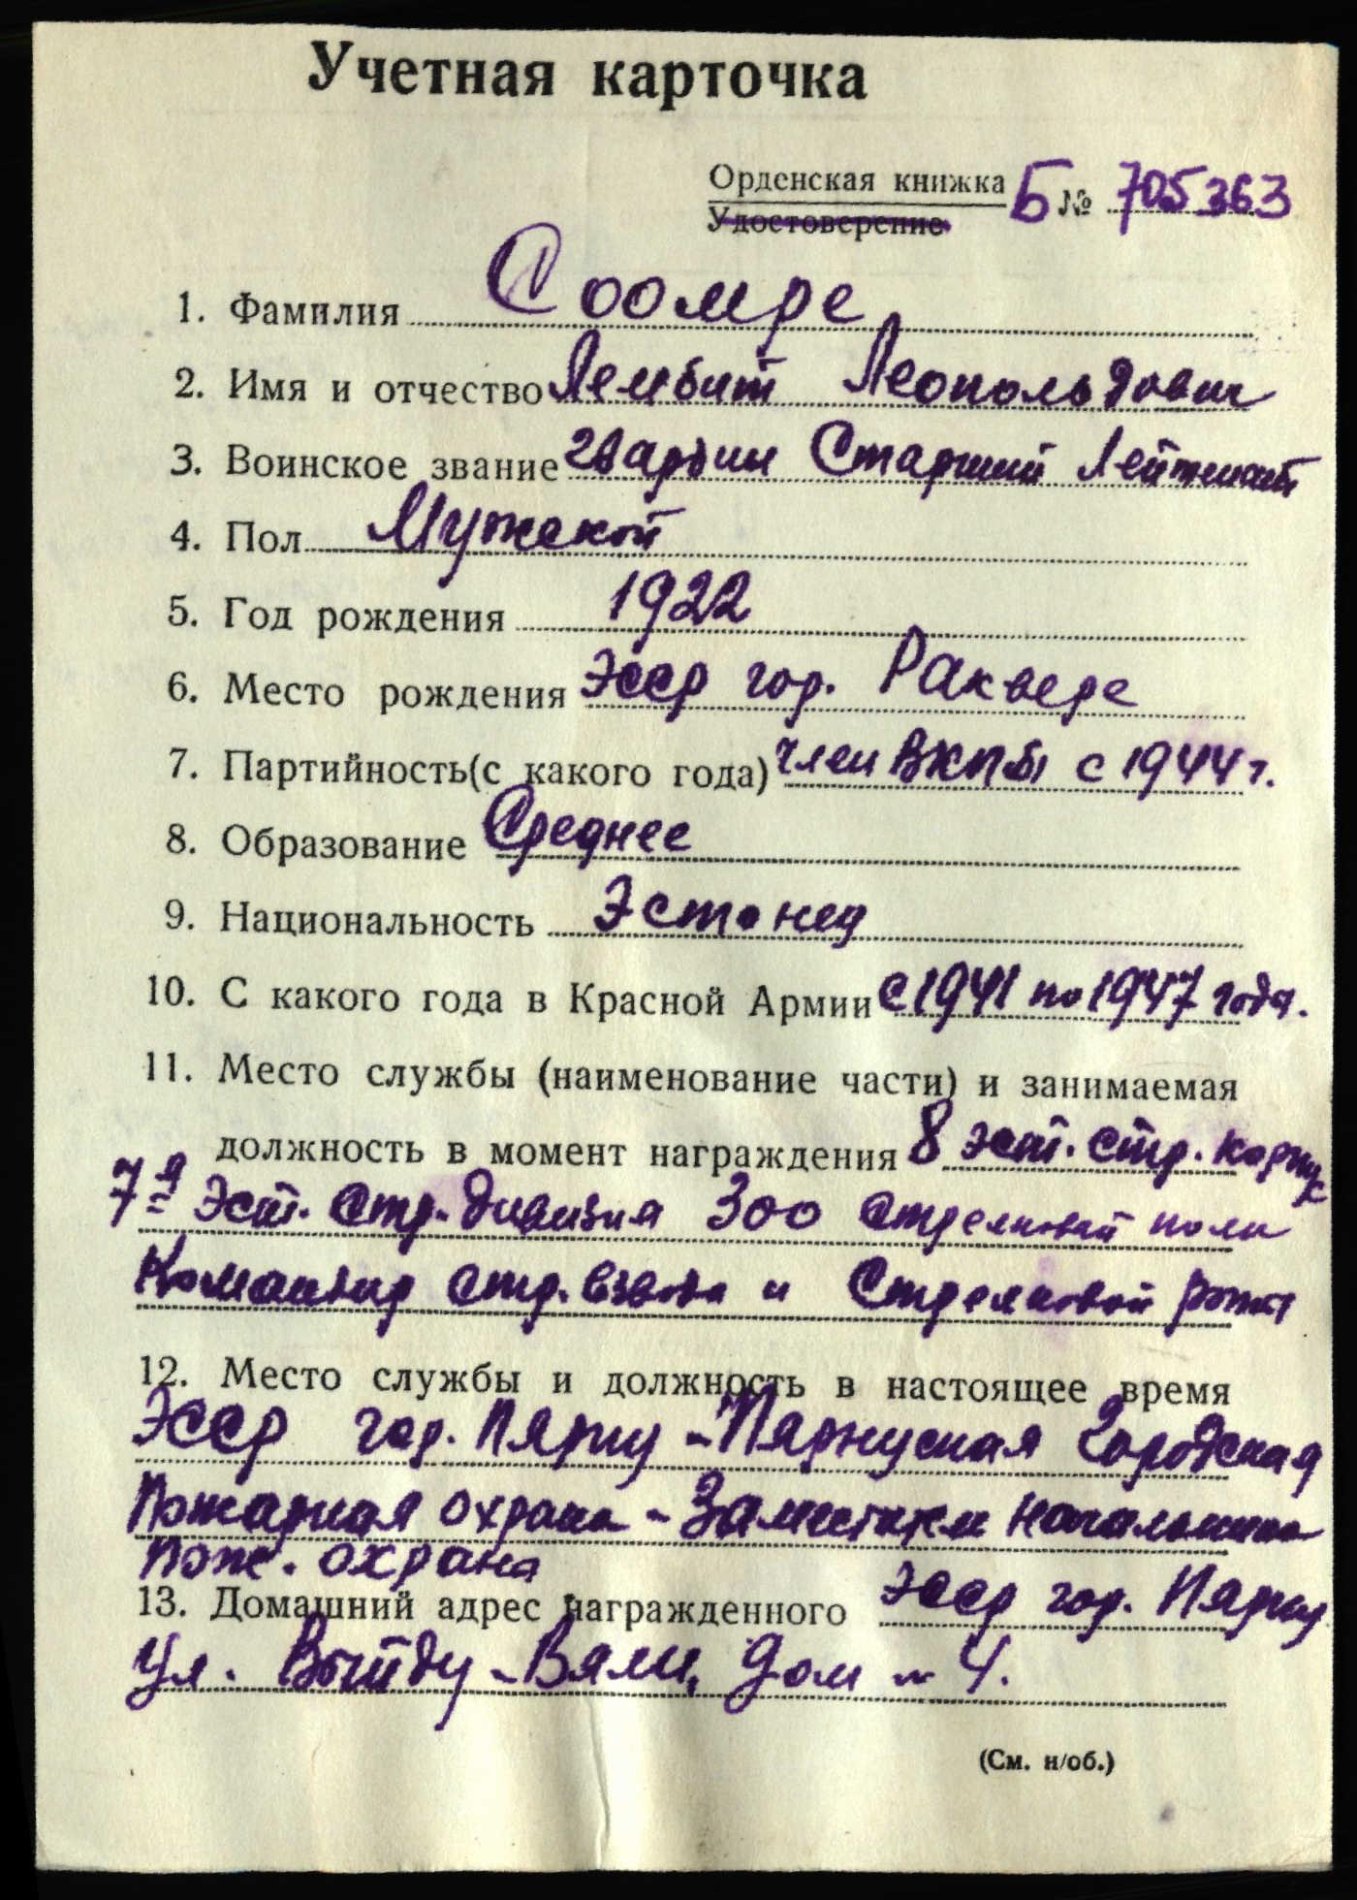 Учетная карточка
Орденская книжка Б № 705363
Удостоверение
1. Фамилия Соомре
2. Имя и отчество Лембит Леопольдович
3. Воинское звание гвардии Старший Лейтенант
4. Пол Мужской
5. Год рождения 1922
6. Место рождения ЭССР гор. Раквере
7. Партийность (с какого года) член ВКПб с 1944 г.
8. Образование Среднее
9. Национальность Эстонец
10. С какого года в Красной Армии с 1941 по 1947 года.
11. Место службы (наименование части) и занимаемая
должность в момент награждения 8 эст. стр. корпус
7я Эст. Стр. дивизия 300 стрелковый полк
Командир стр. взвода и Стрелковой роты
12. Место службы и должность в настоящее время
ЭССР гор. Пярну - Пярнуская Городская
Пожарная охрана - Заместител начальника
Пож. охрана
13. Домашний адрес награжденного ЭССР гор. Пярну
Ул. Вытду-Вяли, дом - 4.
(См. н/об.)